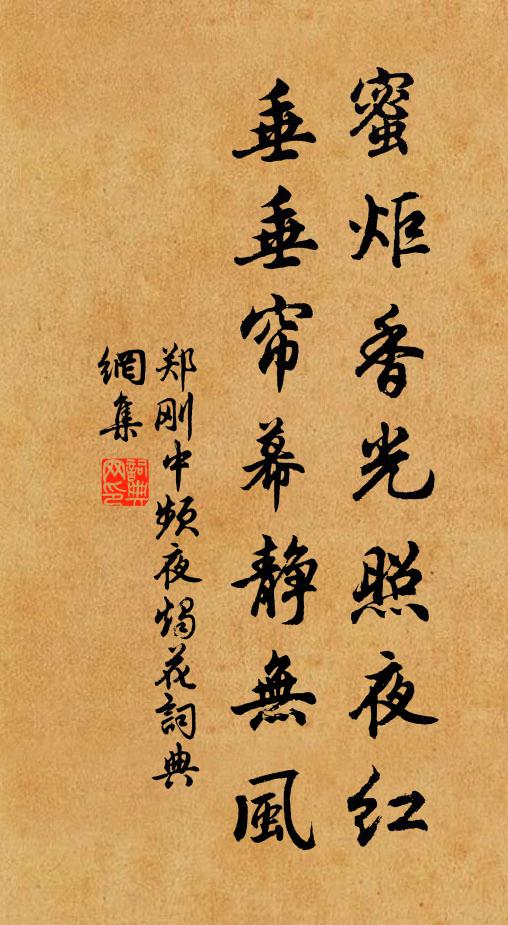 蜜炬香光照夜红
垂垂帘幕静無風
郑刚中频夜烛花詞典
網集
詞典網印